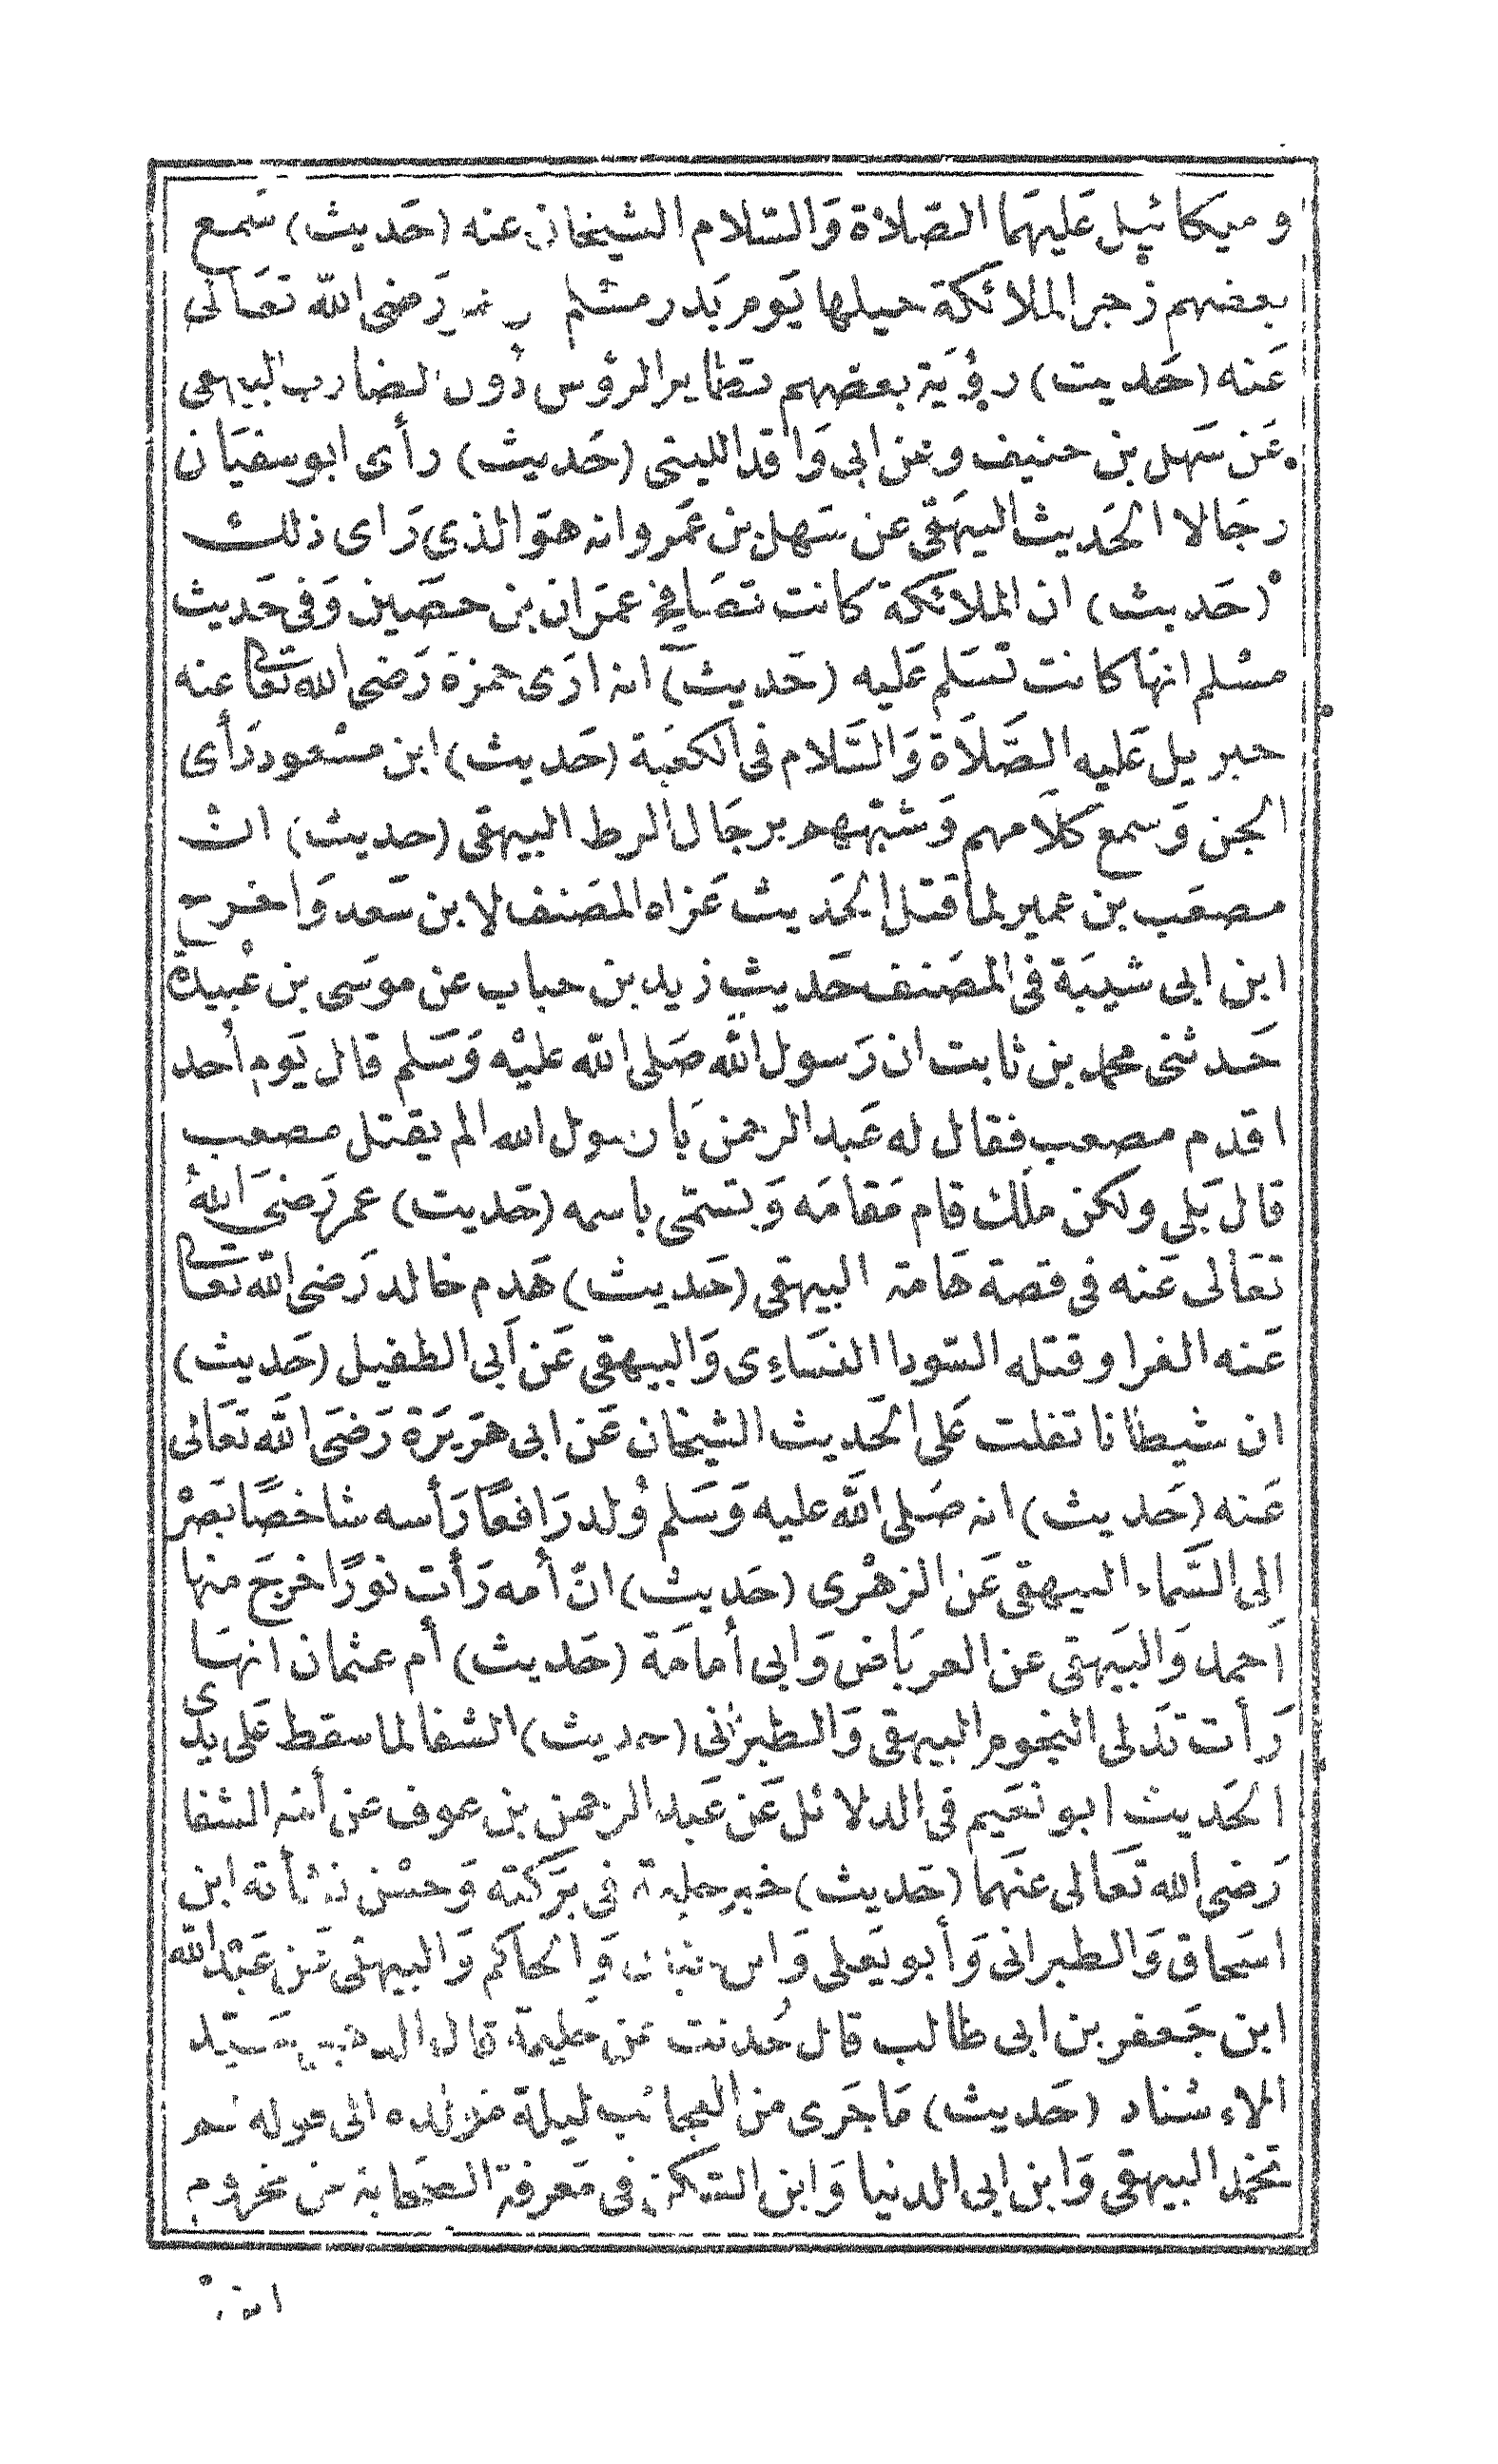 وميكائيل عليهما الصلاة والسلام الشيخان عنه (حديث) سمع
بعضهم زجر الملائكة خيلها يوم بدر مسلم رضى الله تعالى
عنه (حديث) رؤية بعضهم تطاير الرؤس دون الضارب البيهقى
عن سهل بن حنيف وعن ابى واقد الليثى (حديث) رأى ابو سفيان
رجالا الحديث البيهقى عن سهل بن عمرو انه هو الذى راى ذلك
(حديث) ان الملائكة كانت تصافح عمران بن حصين وفى حديث
مسلم انها كانت تسلم عليه (حديث) انه ارى حمزة رضى الله تعالى عنه
جبريل عليه الصلاة والسلام فى الكعبة (حديث) ابن مسعود رأى
الجن وسمع كلامهم وشبههم برجال الرط البيهقى (حديث) ان
مصعب بن عمير لما قتل الحديث عزاه المصنف لابن سعد واخرج
ابن ابى شيبة فى المصنف حديث زيد بن حباب عن موسى بن عبيدة
حدثنى محمد بن ثابت ان رسول الله صلى الله عليه وسلم قال يوم أحد
اقدم مصعب فقال له عبد الرحمن يا رسول الله الم يقتل مصعب
قال بلى ولكن ملك قام مقامه وتسمى باسمه (حديت) عمر رضى الله
تعالى عنه فى قصة هامة البيهقى (حديث) هدم خالد رضى الله تعالى
عنه الغرا وقتله السودا النساءى والبيهقى عن أبى الطفيل (حديث)
ان شيطانا تفلت على الحديث الشيخان عن ابى هريرة رضى الله تعالى
عنه (حديث) انه صلى الله عليه وسلم ولد رافعا رأسه شاخصا بصره
الى السماء البيهقى عن الزهرى (حديث) ان أمه رأت نورا خرج منها
احمد والبيهقى عن العرباض وابى أمامة (حديث) أم عثمان انها
رأت تدلى النجوم البيهقى والطبرانى (حديث) الشفا لما سقط على يدى
الحديث ابو نعيم فى الدلائل عن عبد الرحمن بن عوف عن أمه الشفا
رضى الله تعالى عنهما (حديث) خبر حليمة فى بركته وحسن نشأته ابن
اسحاق والطبرانى وأبو يعلى والحاكم والبيهقى عن عبد الله
ابن جعفر بن ابى طالب قال حدثت عن حليمة قال الذهبى جيد
الاسناد (حديث) ما جرى من العجائب ليلة مولده الى قوله لم
تخمد البيهقى وابن ابى الدنيا وابن السكن فى معرفة الصحابة عن مخزوم